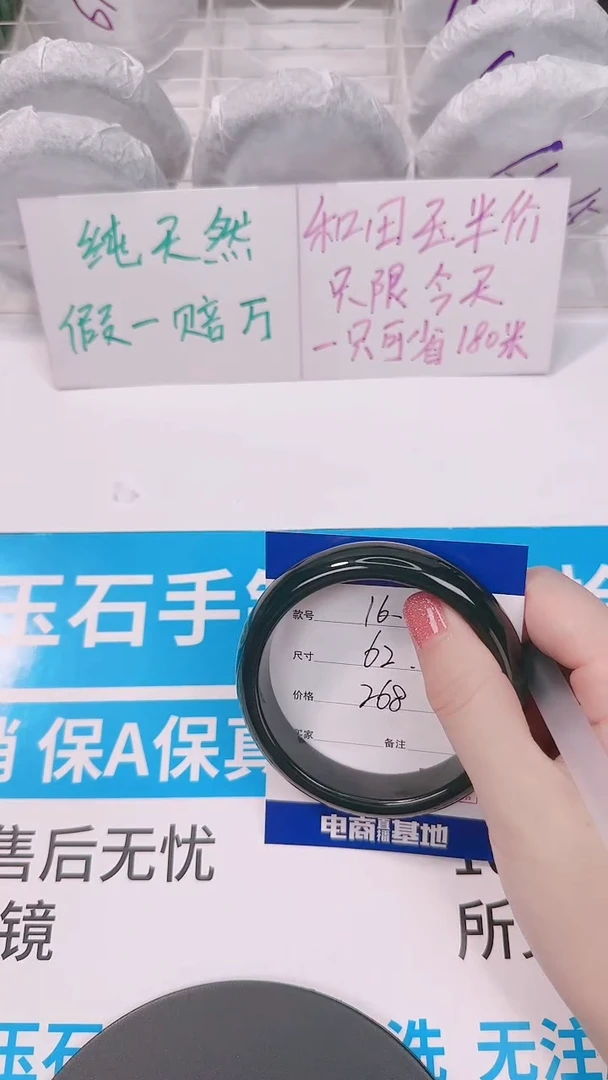 纯天然
假一赔万
和田玉半价
只限今天
一只可省180米
玉石手
款号 16-
尺寸 62.
价格 268
买家 备注
保A保真
电商直播基地
售后无忧
镜
所
玉石
洗 无注